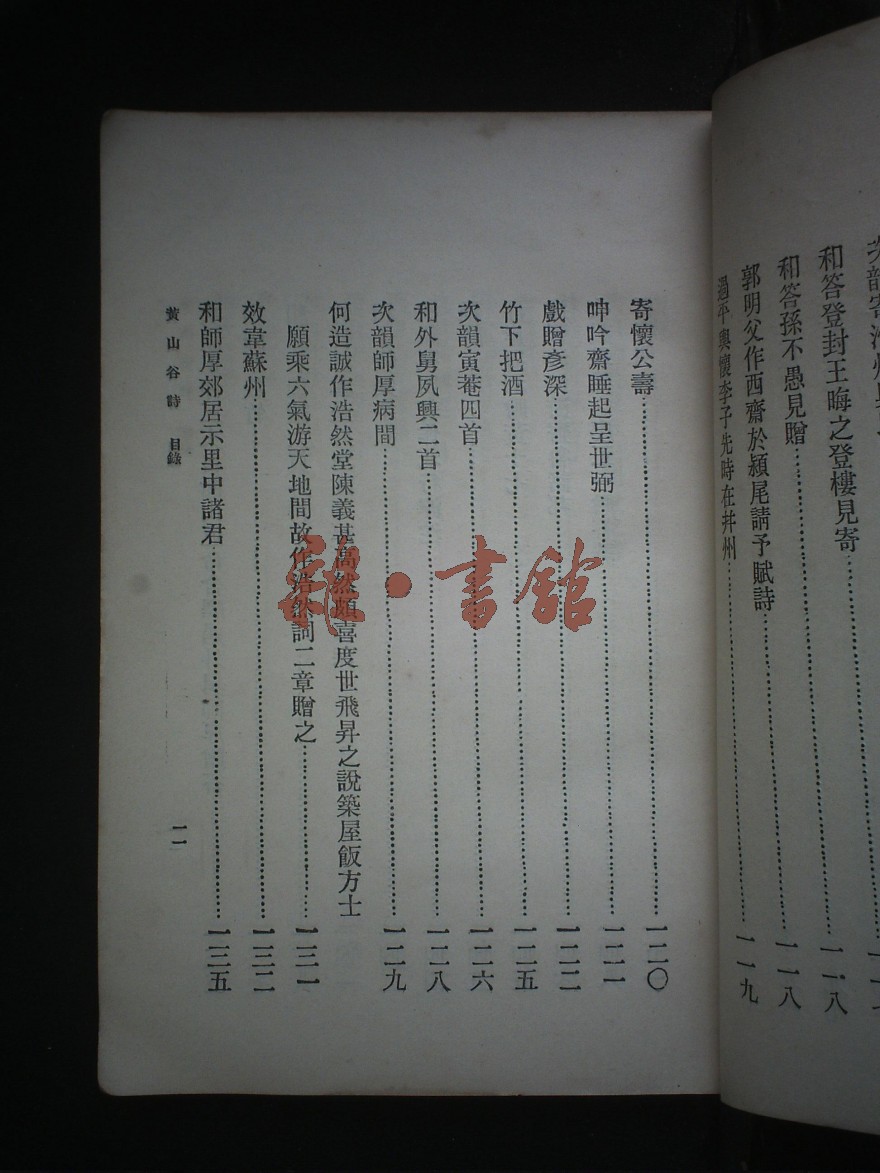 次韻寄
和答登封王晦之登樓見寄……一一八
和答孫不愚見贈……一一八
郭明父作西齋於潁尾請予賦詩……一一九
過平輿懷李子先時在幷州……
寄懷公壽……一二〇
呻吟齋睡起呈世弼……一二一
戲贈彥深……一二二
竹下把酒……一二五
次韻寅菴四首……一二六
和外舅夙興二首……一二八
次韻師厚病間……一二九
何造誠作浩然堂陳義甚高然頗喜度世飛昇之說築屋飯方士
願乘六氣游天地間故作浩然詞二章贈之……一三一
效韋蘇州……一三二
和師厚郊居示里中諸君……一三五
黃山谷詩 目錄
一一
雜·書館